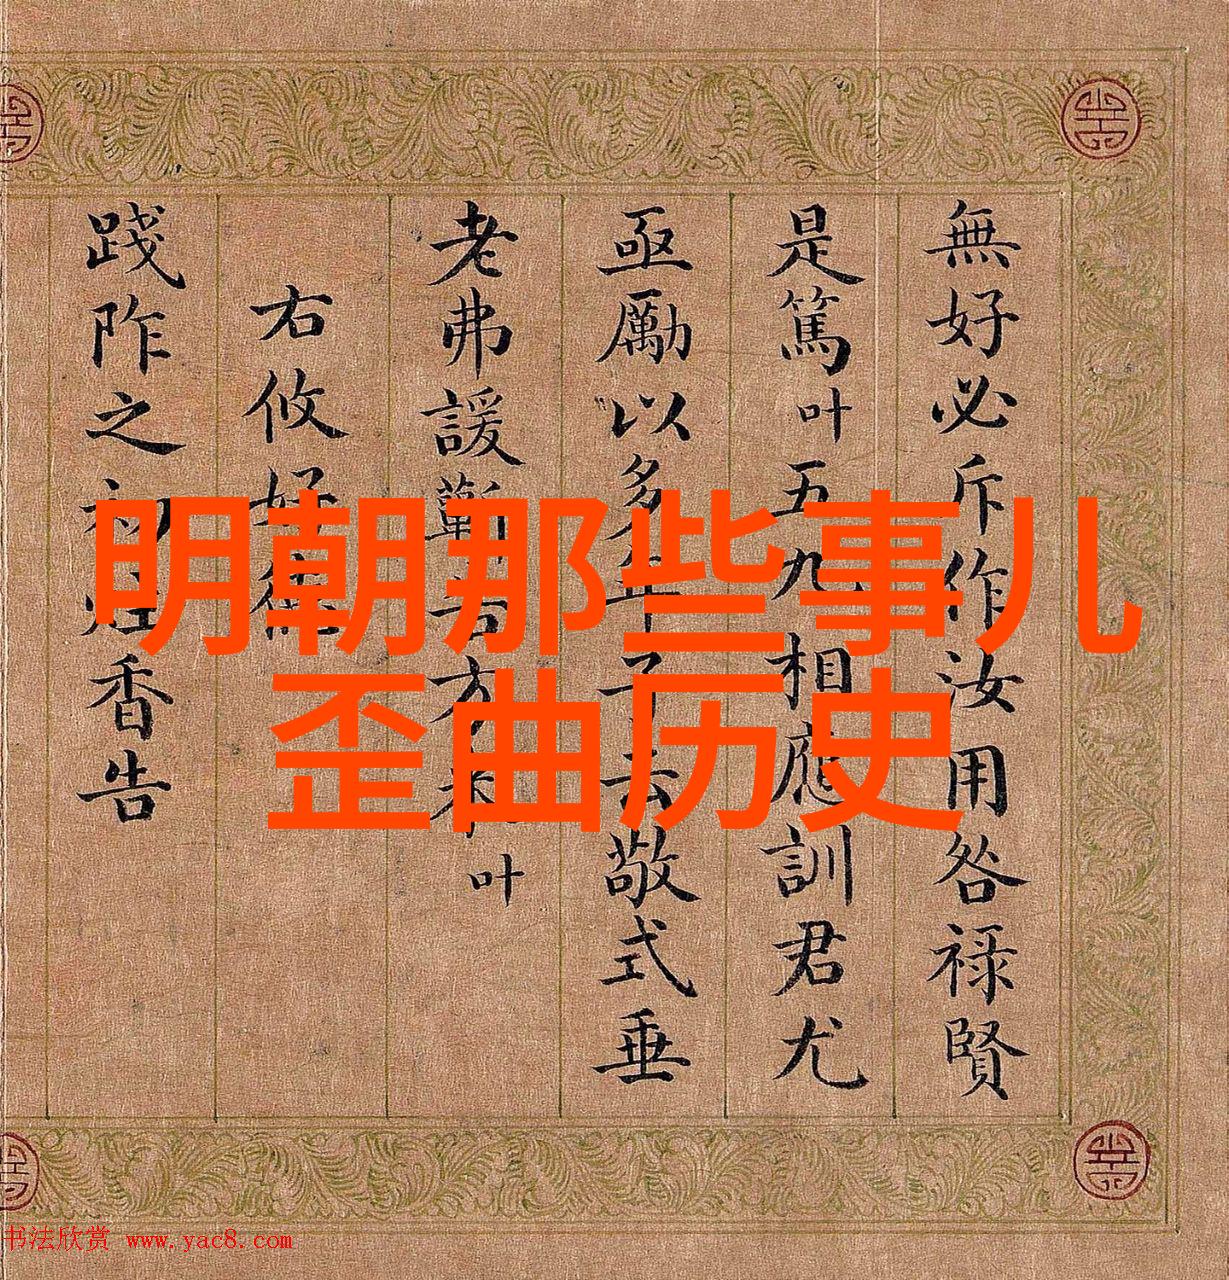 明朝那些事儿
歪曲历史
無好必斥作汝用咎祿賢
是篤叶五九相應訓君尤
亟勵以多年予云敬式垂
老弗諼蘄方叶
右攸好德
踐阼之初炷香告
书法欣赏 www.yac8.com